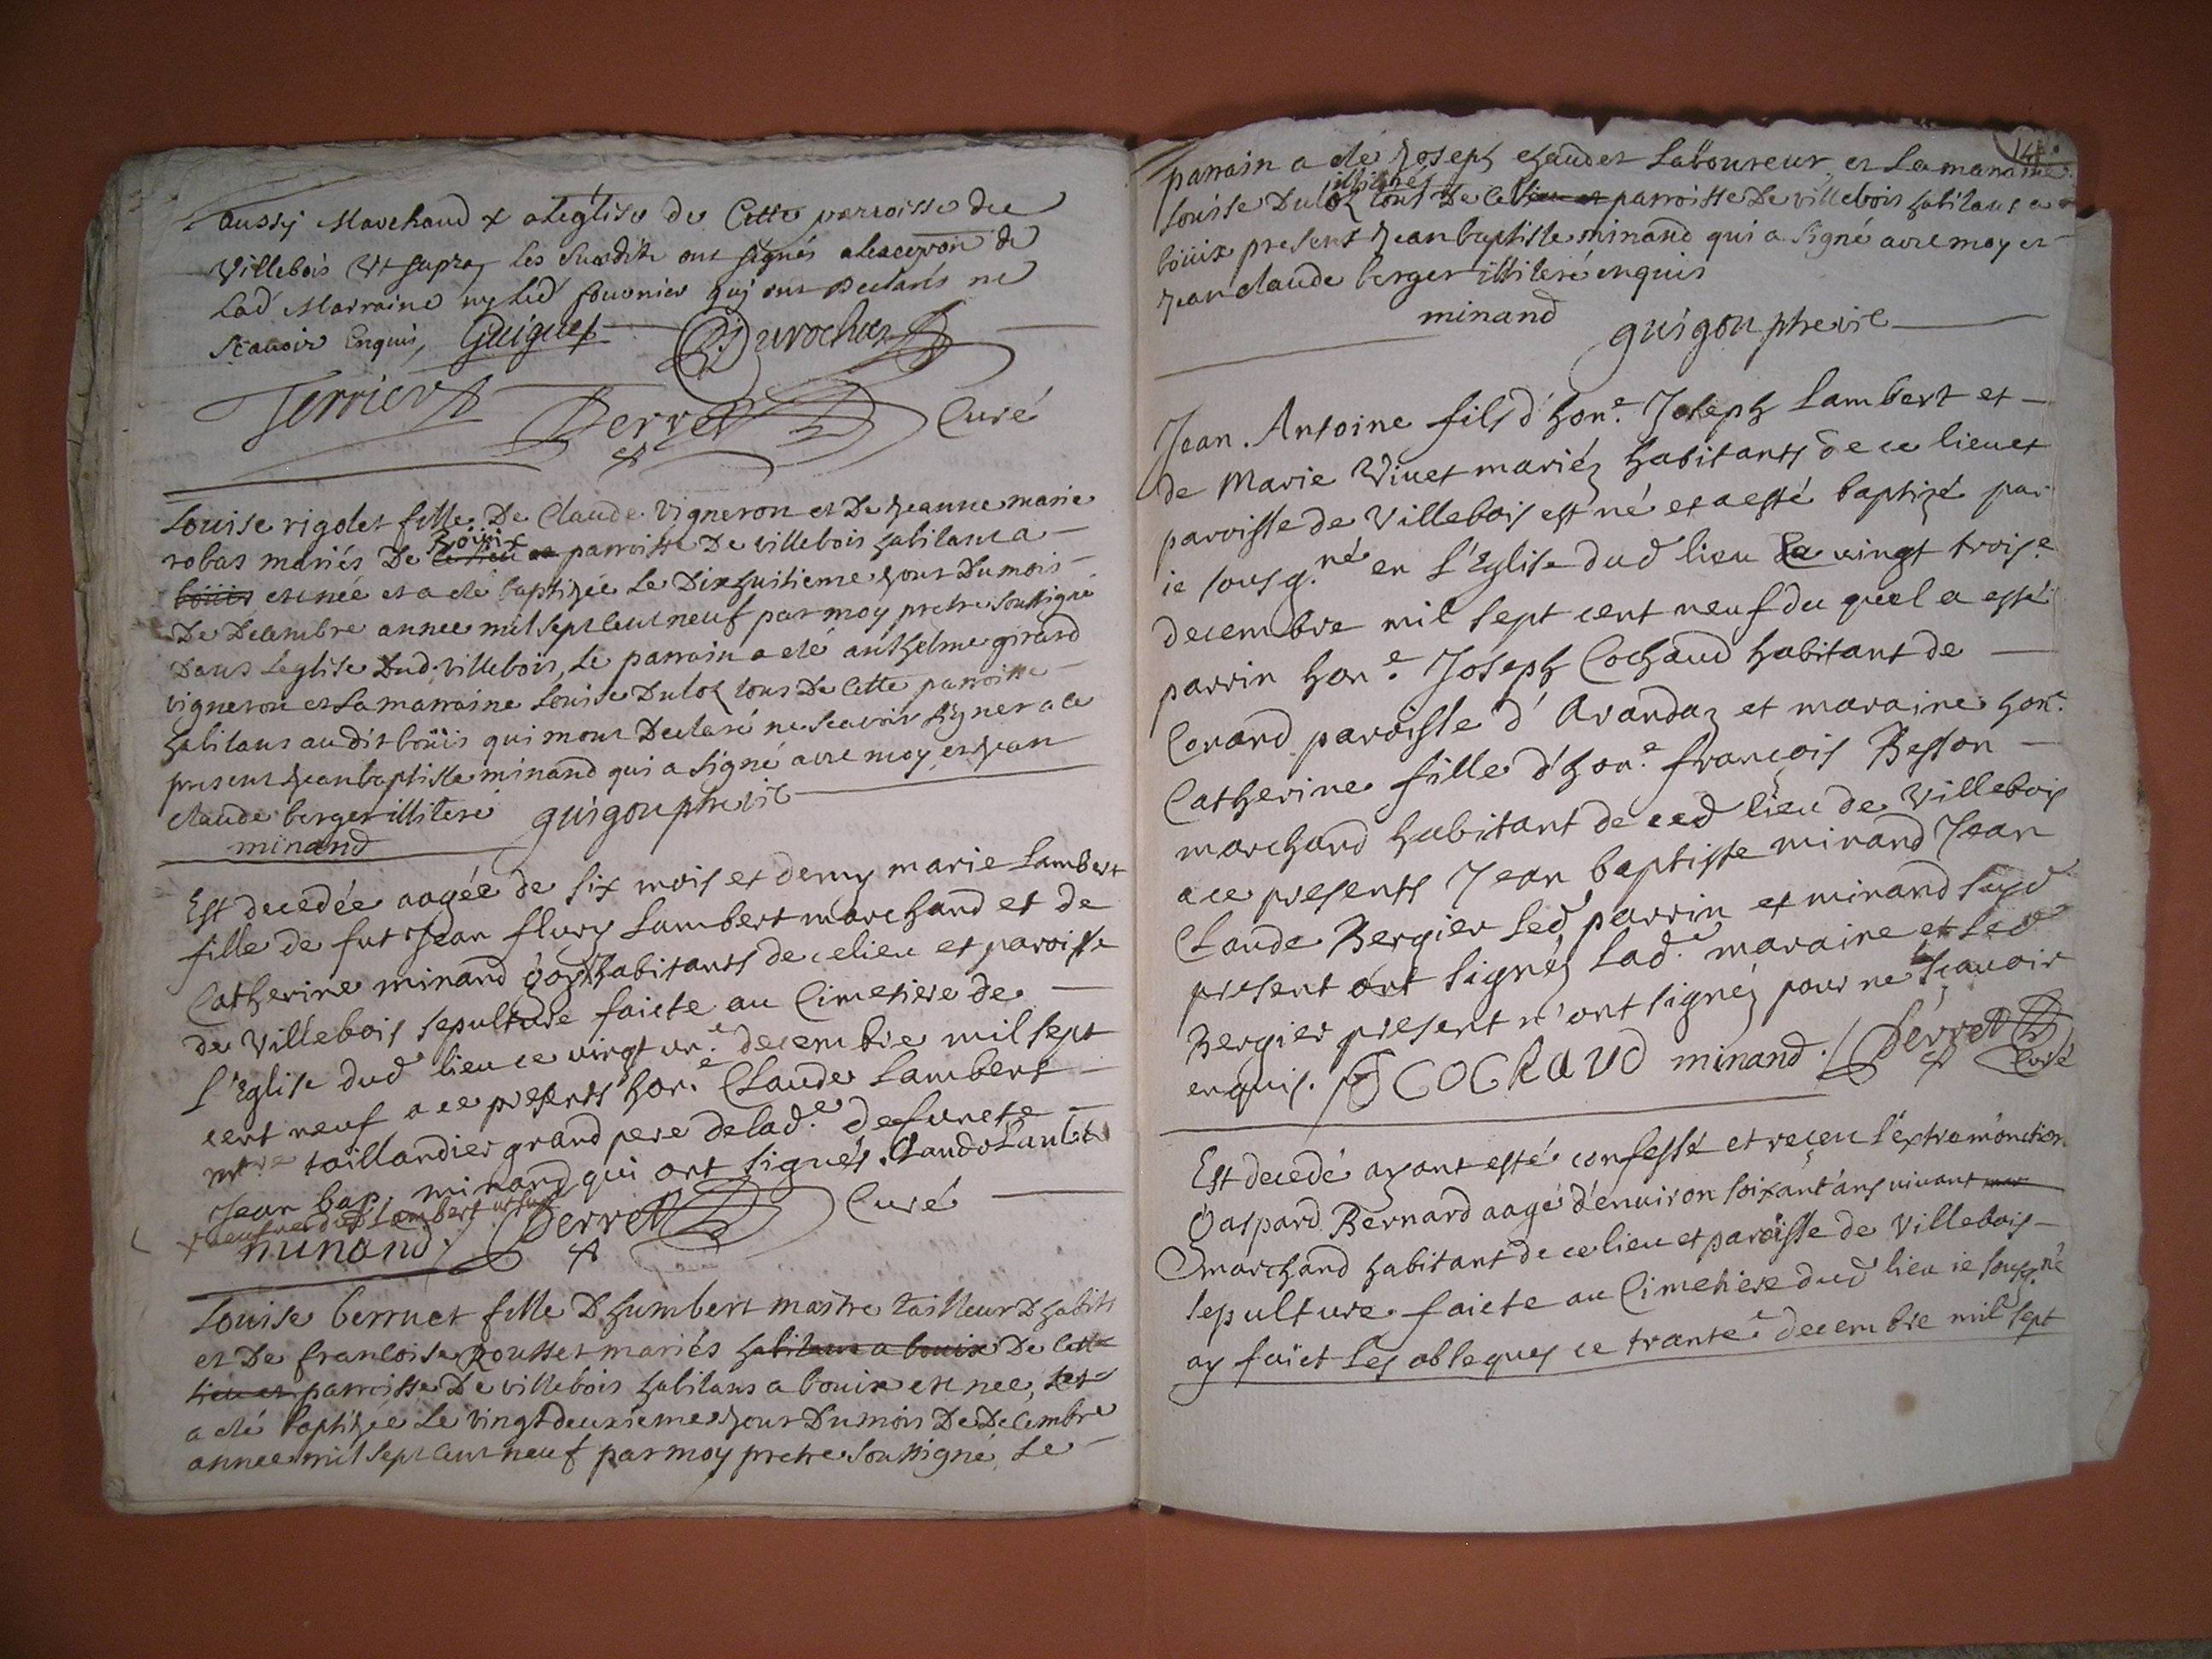 aussy Marchand x a leglise de Cette parroisse de
Villebois Vt supra, les Susdits ont signés a lexception de
Lad Marraine ny led qui ont Declarés ne
Scavoir Enquis, Guiguet Durochat
Terrier Perret Curé
Louise rigolet fille De Claude vigneron et De Jeanne marie
robas mariés De ce lieu et Boüix parroisse De villebois habitans a
boüis est née et a eté baptizée Le Dixhuitieme Jour Dumois
De Decembre annee mil sept Cent neuf par moy pretre soussigné
Dans Leglise Dud. villebois, Le parrain a eté anthelme girard
vigneron et La marraine Louise Duloz tous De Cette parroisse
habitans audit boüis qui mont Declaré ne scavoir signer a ce
present Jean baptiste minand qui a signé avec moy et Jean
claude berger illiteré guigou ptre vic
minand
Est decedée aagée de six mois et demy marie Lambert
fille de fut Jean flury Lambert marchand et de
Catherine minand habitants de ce lieu et paroisse
de Villebois sepulture faicte au Cimetiere de
L'Eglise dud lieu ce vingt un.e decembre mil sept
cent neuf a ce presents hon.e Claude Lambert
m.tre taillandier grand pere de lad.e defuncte
Jean bap. minand qui ont signés. Claude Lambert
minand Perret Curé
Louise berruet fille D humbert maitre tailleur D habits
et De francoise rousset mariés habitans a bouix De Cette
lieu et parroisse De villebois habitans a bouix est nee, et
a eté baptizée Le vingtdeuxieme Jour Dumois De Decembre
annee mil sept Cent neuf par moy pretre soussigné Le
parrain a eté Joseph chaudet Laboureur et La marraine
Louise Duloz illiterés tous De Ce lieu et parroisse De villebois habitans a
boüix present Jean baptiste minand qui a signé avec moy et
Jean claude berger illiteré enquis
minand guigou ptre vic
Jean Antoine fils d'hon.e Joseph Lambert et
de Marie Vivet mariéz habitants de ce lieu et
paroisse de Villebois est né et a esté baptizé par
ie sousg.né en L'Eglise dud lieu Le vingt trois.e
decembre mil sept cent neuf du quel a esté
parrin hon.e Joseph Cochaud habitant de
Conand paroisse d'Arandaz et maraine hon.e
Catherine fille d'hon.e françois Besson
marchand habitant de ced lieu de Villebois
a ce presents Jean baptiste minand Jean
Claude Bergier led parrin et minand susd
present ont signéz lad.e maraine et led
Bergier present n'ont signéz pour ne sçavoir
enquis. J COCHAUD minand. Perret Curé
Est decedé ayant esté confessé et receu l'extremonction
Gaspard Bernard aagé d'environ soixant'ans vivant
marchand habitant de ce lieu et paroisse de Villebois
sepulture faicte au Cimetiere dud lieu ie sousg.né
ay faict les obseques ce trante.e decembre mil sept